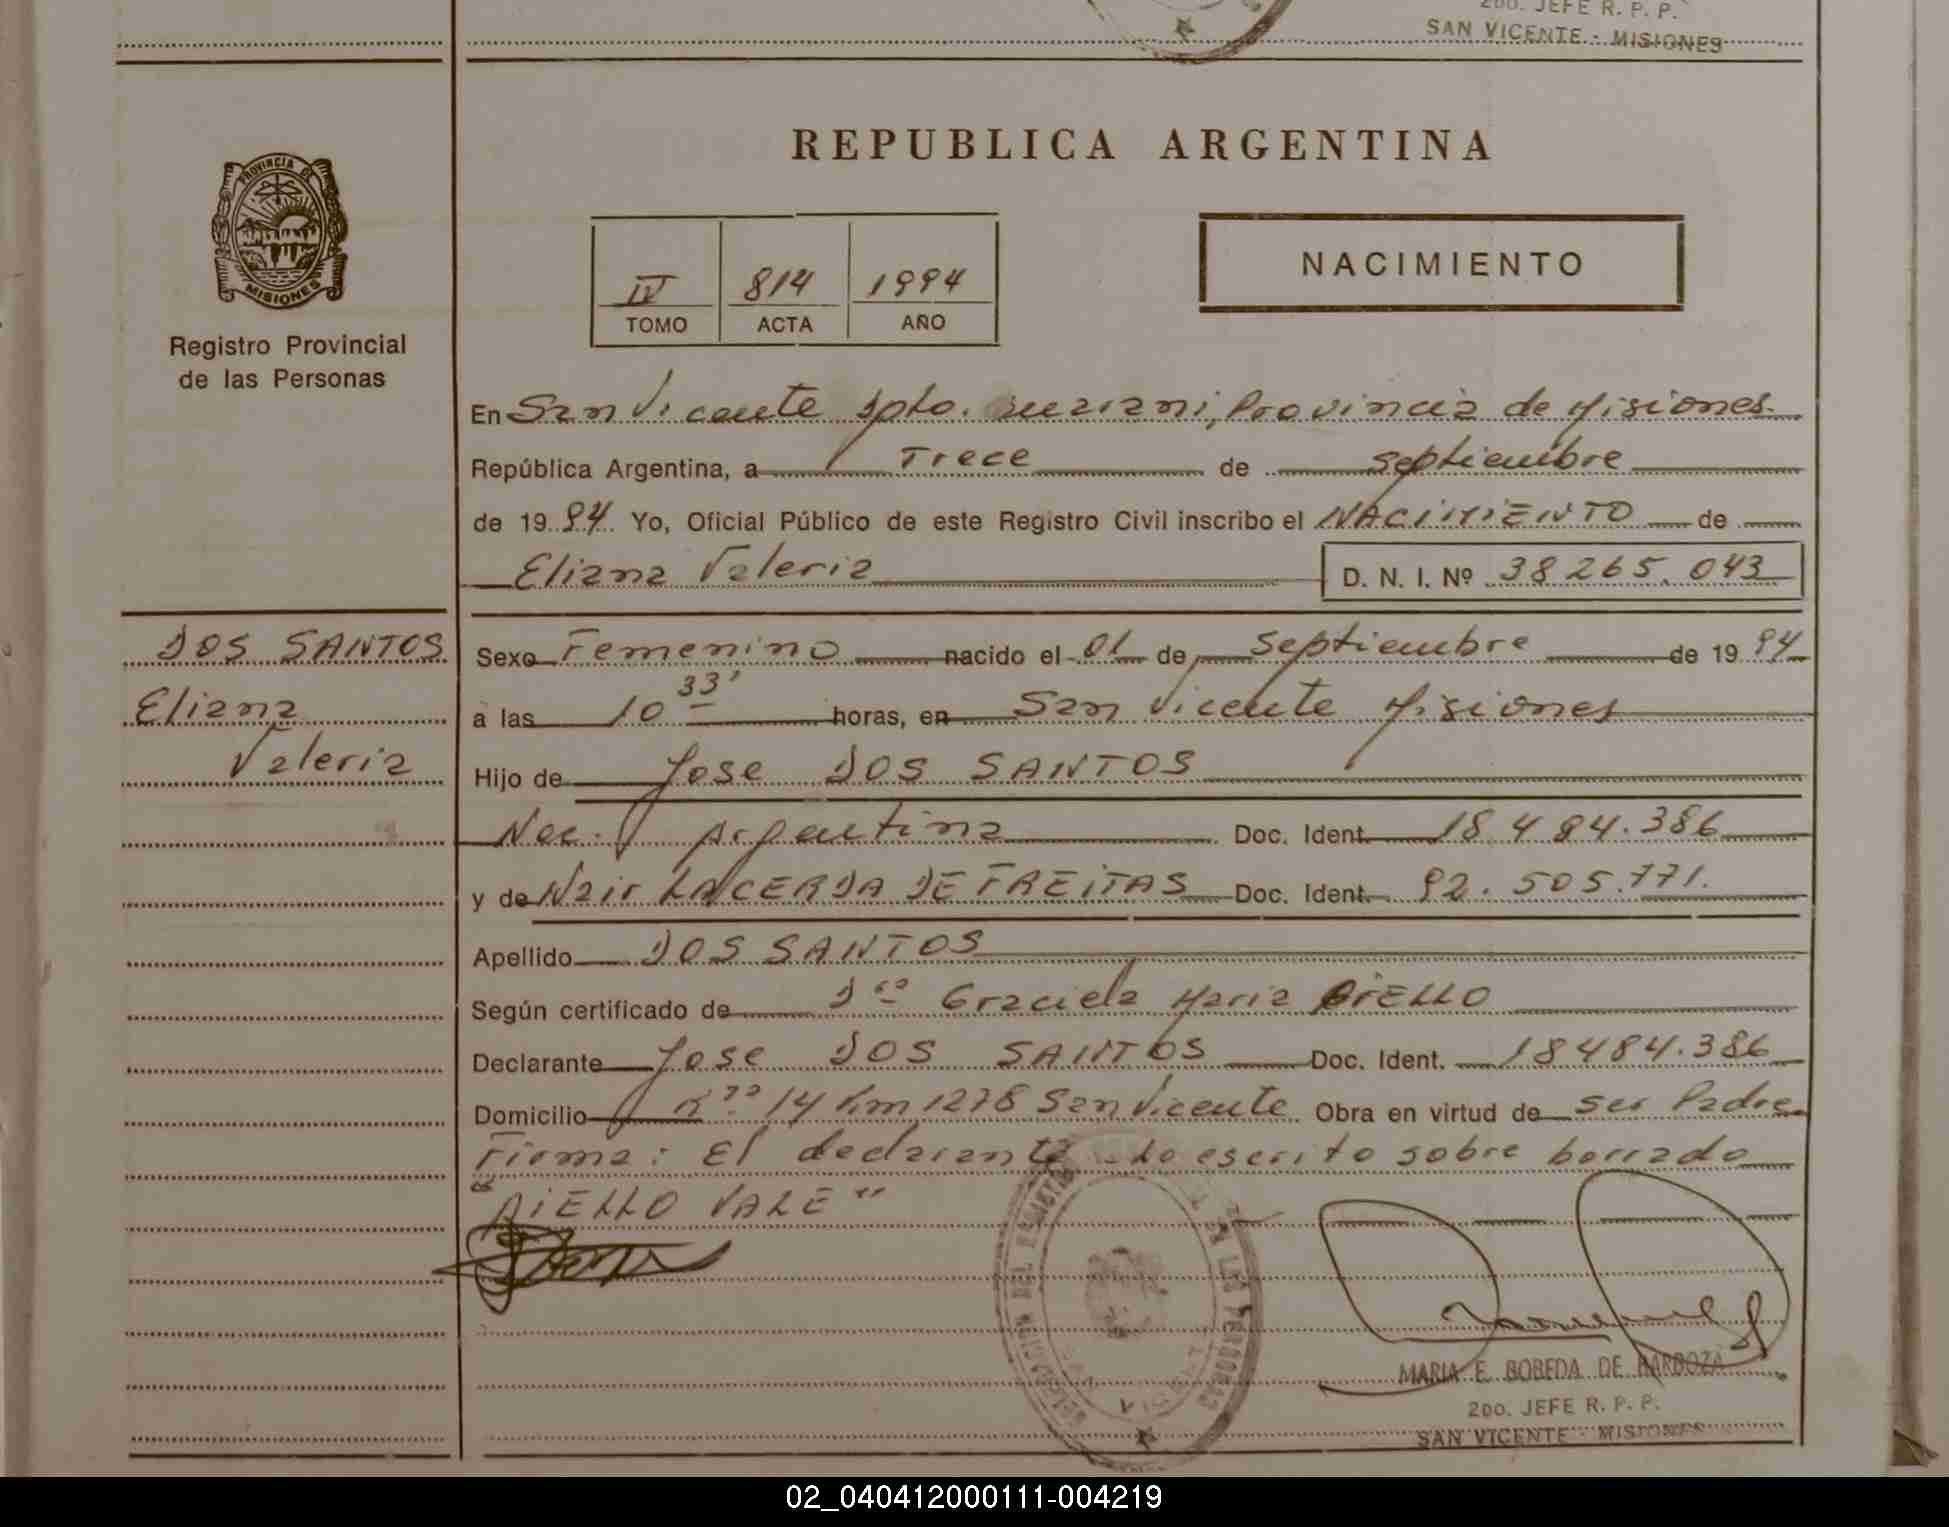 2DO. JEFE R. P. P.
SAN VICENTE - MISIONES
PROVINCIA DE
MISIONES
Registro Provincial
de las Personas
REPUBLICA ARGENTINA
IV 814 1994
TOMO ACTA AÑO
NACIMIENTO
En San Vicente Dpto. Guarani, Provincia de Misiones.
República Argentina, a Trece de septiembre
de 1994 Yo, Oficial Público de este Registro Civil inscribo el NACIMIENTO de
Eliana Valeria D. N. I. Nº 38265.043
DOS SANTOS
Eliana
Valeria
Sexo Femenino nacido el 01 de Septiembre de 1994
a las 10 33' horas, en San Vicente Misiones
Hijo de Jose DOS SANTOS
Nac. Argentina Doc. Ident. 18.484.386
y de Nair LACERDA DE FREITAS Doc. Ident. 92.505.771.
Apellido DOS SANTOS
Según certificado de Dra Graciela Maria AIELLO
Declarante Jose DOS SANTOS Doc. Ident. 18484.386
Domicilio 14 Km 1278 San Vicente Obra en virtud de ser Padre
Firma: El declarante Lo escrito sobre borrado
"AIELLO VALE"
DE LAS PERSONAS
MARIA E. BOBEDA DE BARDOZA
2DO. JEFE R. P. P.
SAN VICENTE - MISIONES
02_040412000111-004219